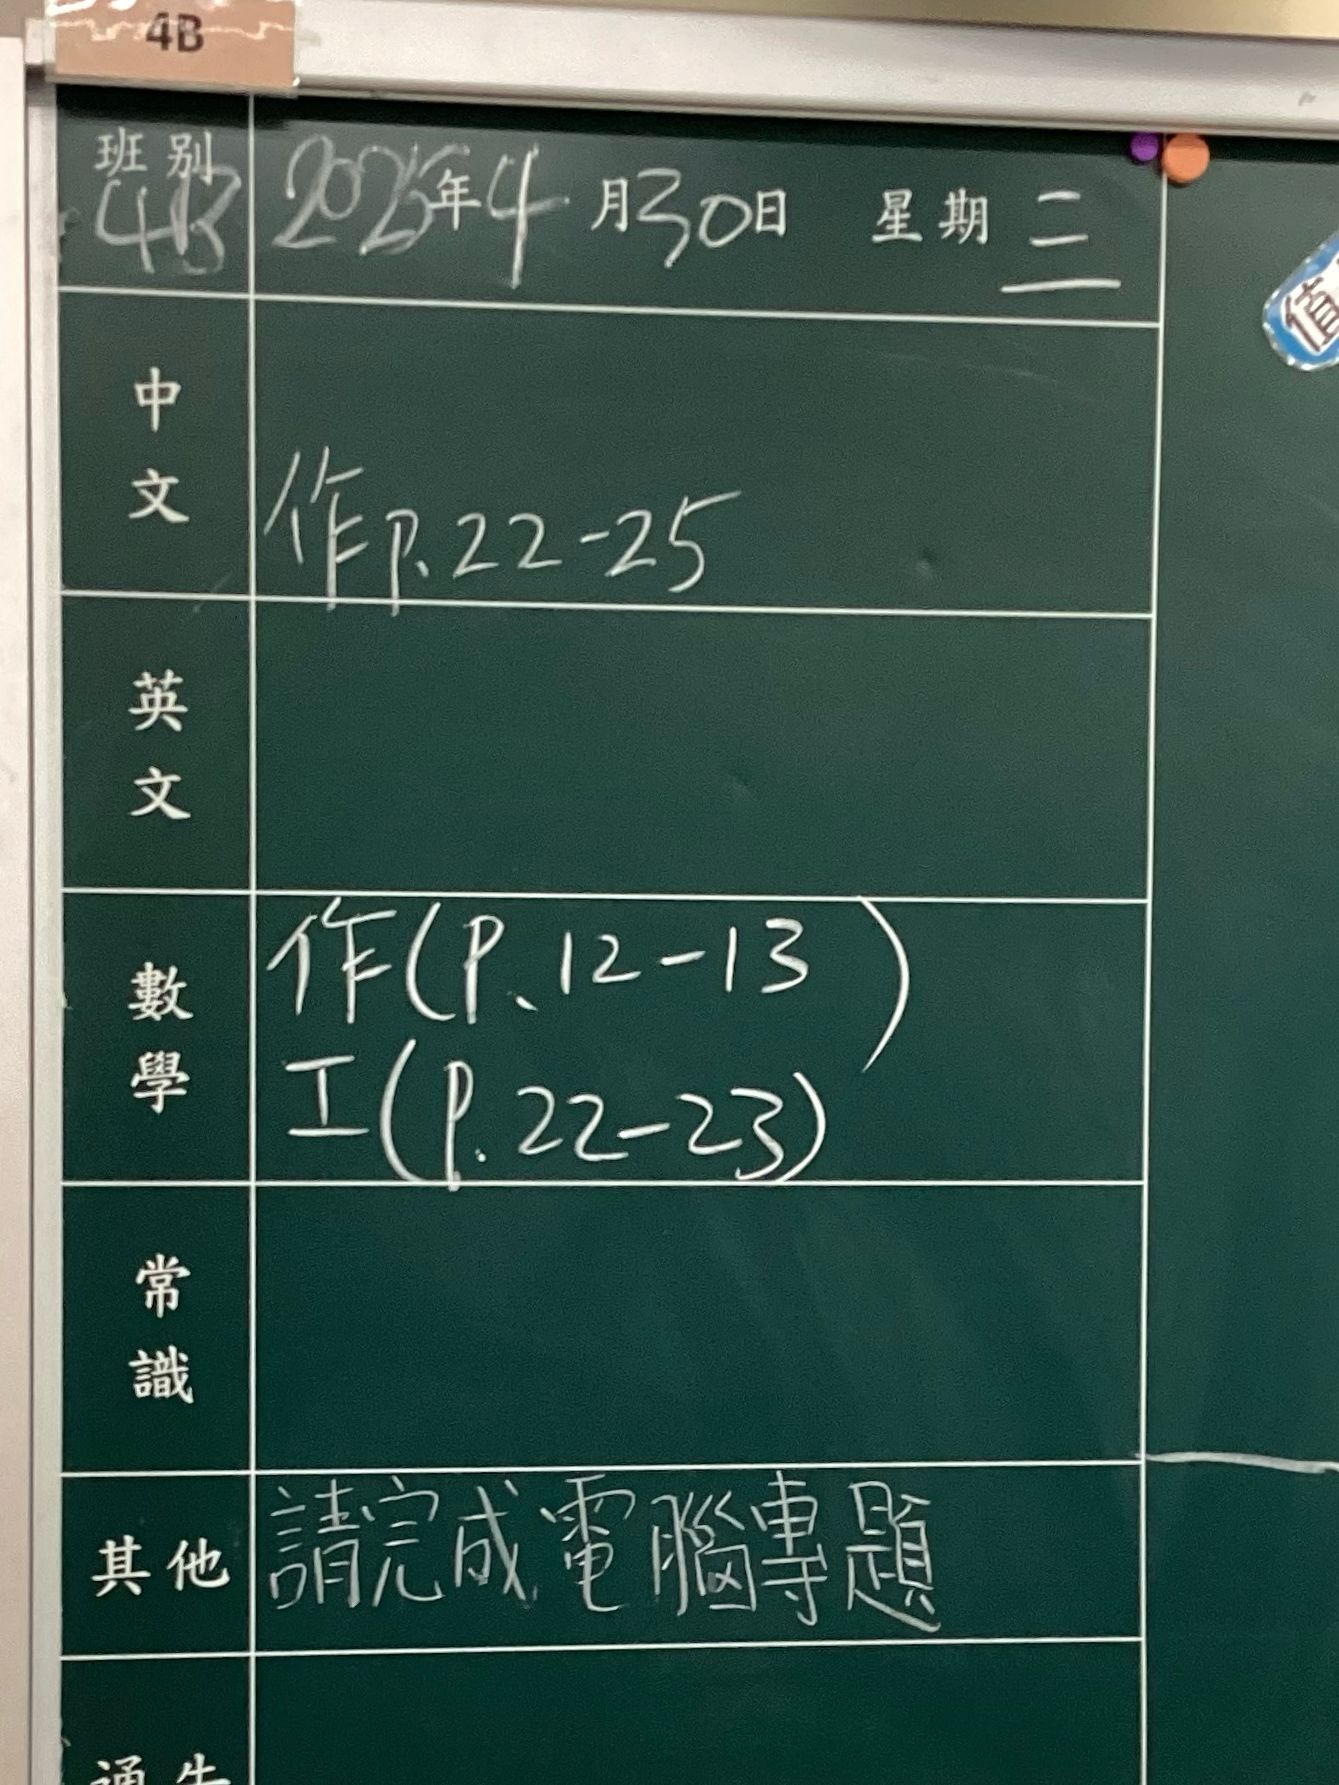 4B
班別 4B 2025年4月30日 星期三
中文 作P.22-25
英文
數學 作(P.12-13)
工(P.22-23)
常識
其他 請完成電腦專題
通告
值